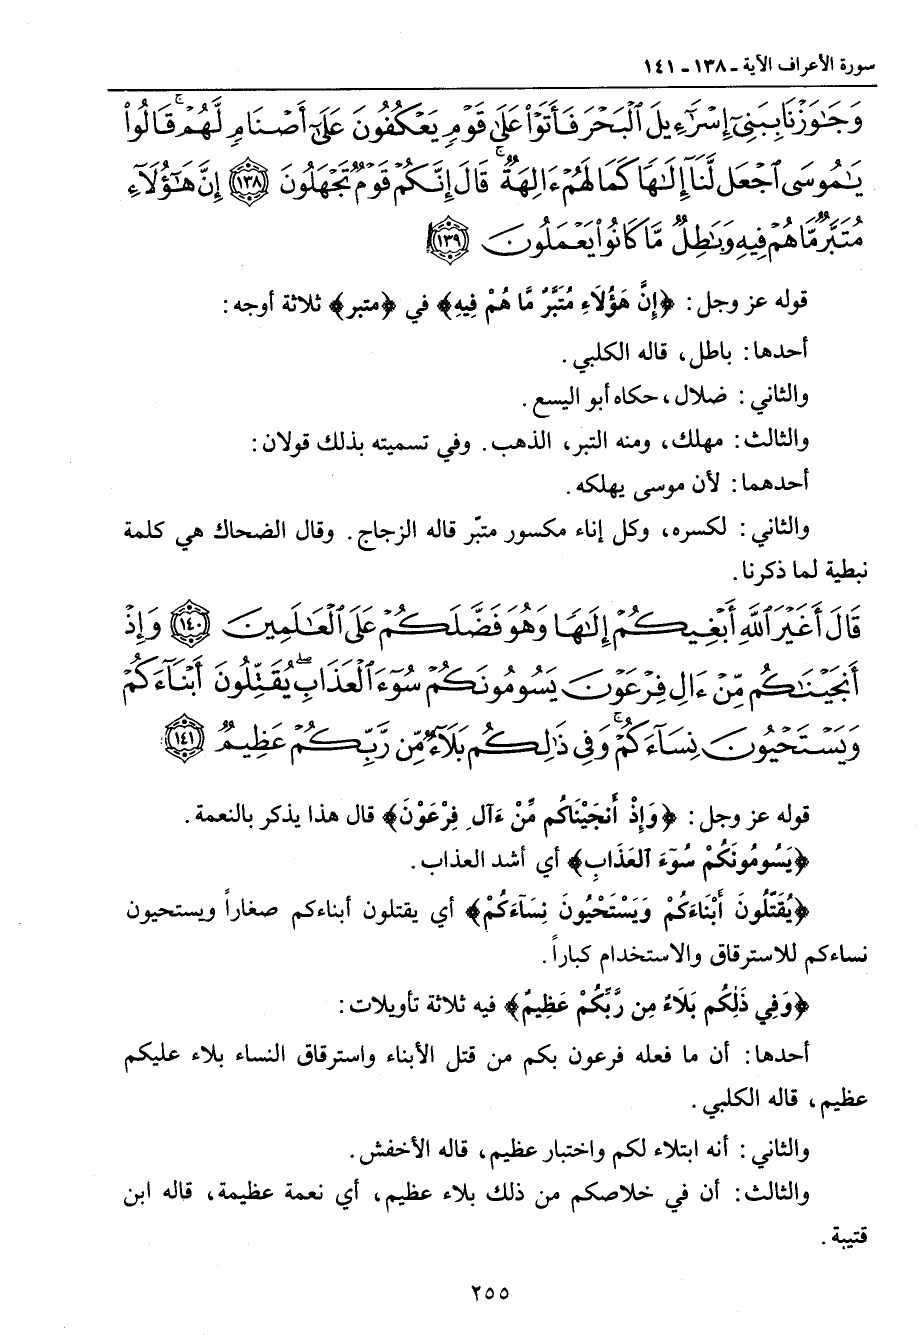 سورة الأعراف الآية ـ ١٣٨ ـ ١٤١
وَجَٰوَزْنَا بِبَنِىٓ إِسْرَٰٓءِيلَ ٱلْبَحْرَ فَأَتَوْا۟ عَلَىٰ قَوْمٍ يَعْكُفُونَ عَلَىٰٓ أَصْنَامٍ لَّهُمْ ۚ قَالُوا۟
يَٰمُوسَى ٱجْعَل لَّنَآ إِلَٰهًا كَمَا لَهُمْ ءَالِهَةٌ ۚ قَالَ إِنَّكُمْ قَوْمٌ تَجْهَلُونَ ﴿١٣٨﴾ إِنَّ هَٰٓؤُلَآءِ
مُتَبَّرٌ مَّا هُمْ فِيهِ وَبَٰطِلٌ مَّا كَانُوا۟ يَعْمَلُونَ ﴿١٣٩﴾
قوله عز وجل: ﴿إِنَّ هَؤُلَاءِ مُتَبَّرٌ مَّا هُمْ فِيهِ﴾ في ﴿متبر﴾ ثلاثة أوجه:
أحدها: باطل، قاله الكلبي.
والثاني: ضلال، حكاه أبو اليسع.
والثالث: مهلك، ومنه التبر، الذهب. وفي تسميته بذلك قولان:
أحدهما: لأن موسى يهلكه.
والثاني: لكسره، وكل إناء مكسور متبّر قاله الزجاج. وقال الضحاك هي كلمة
نبطية لما ذكرنا.
قَالَ أَغَيْرَ ٱللَّهِ أَبْغِيكُمْ إِلَٰهًا وَهُوَ فَضَّلَكُمْ عَلَى ٱلْعَٰلَمِينَ ﴿١٤٠﴾ وَإِذْ
أَنجَيْنَٰكُم مِّنْ ءَالِ فِرْعَوْنَ يَسُومُونَكُمْ سُوٓءَ ٱلْعَذَابِ ۖ يُقَتِّلُونَ أَبْنَآءَكُمْ
وَيَسْتَحْيُونَ نِسَآءَكُمْ ۚ وَفِى ذَٰلِكُم بَلَآءٌ مِّن رَّبِّكُمْ عَظِيمٌ ﴿١٤١﴾
قوله عز وجل: ﴿وَإِذْ أَنجَيْنَاكُم مِّنْ ءَآلِ فِرْعَوْنَ﴾ قال هذا يذكر بالنعمة.
﴿يَسُومُونَكُمْ سُوٓءَ الْعَذَابِ﴾ أي أشد العذاب.
﴿يُقَتِّلُونَ أَبْنَاءَكُمْ وَيَسْتَحْيُونَ نِسَآءَكُمْ﴾ أي يقتلون أبناءكم صغاراً ويستحيون
نساءكم للاسترقاق والاستخدام كباراً.
﴿وَفِي ذَٰلِكُم بَلَاءٌ مِن رَّبِّكُمْ عَظِيمٌ﴾ فيه ثلاثة تأويلات:
أحدها: أن ما فعله فرعون بكم من قتل الأبناء واسترقاق النساء بلاء عليكم
عظيم، قاله الكلبي.
والثاني: أنه ابتلاء لكم واختبار عظيم، قاله الأخفش.
والثالث: أن في خلاصكم من ذلك بلاء عظيم، أي نعمة عظيمة، قاله ابن
قتيبة.
٢٥٥